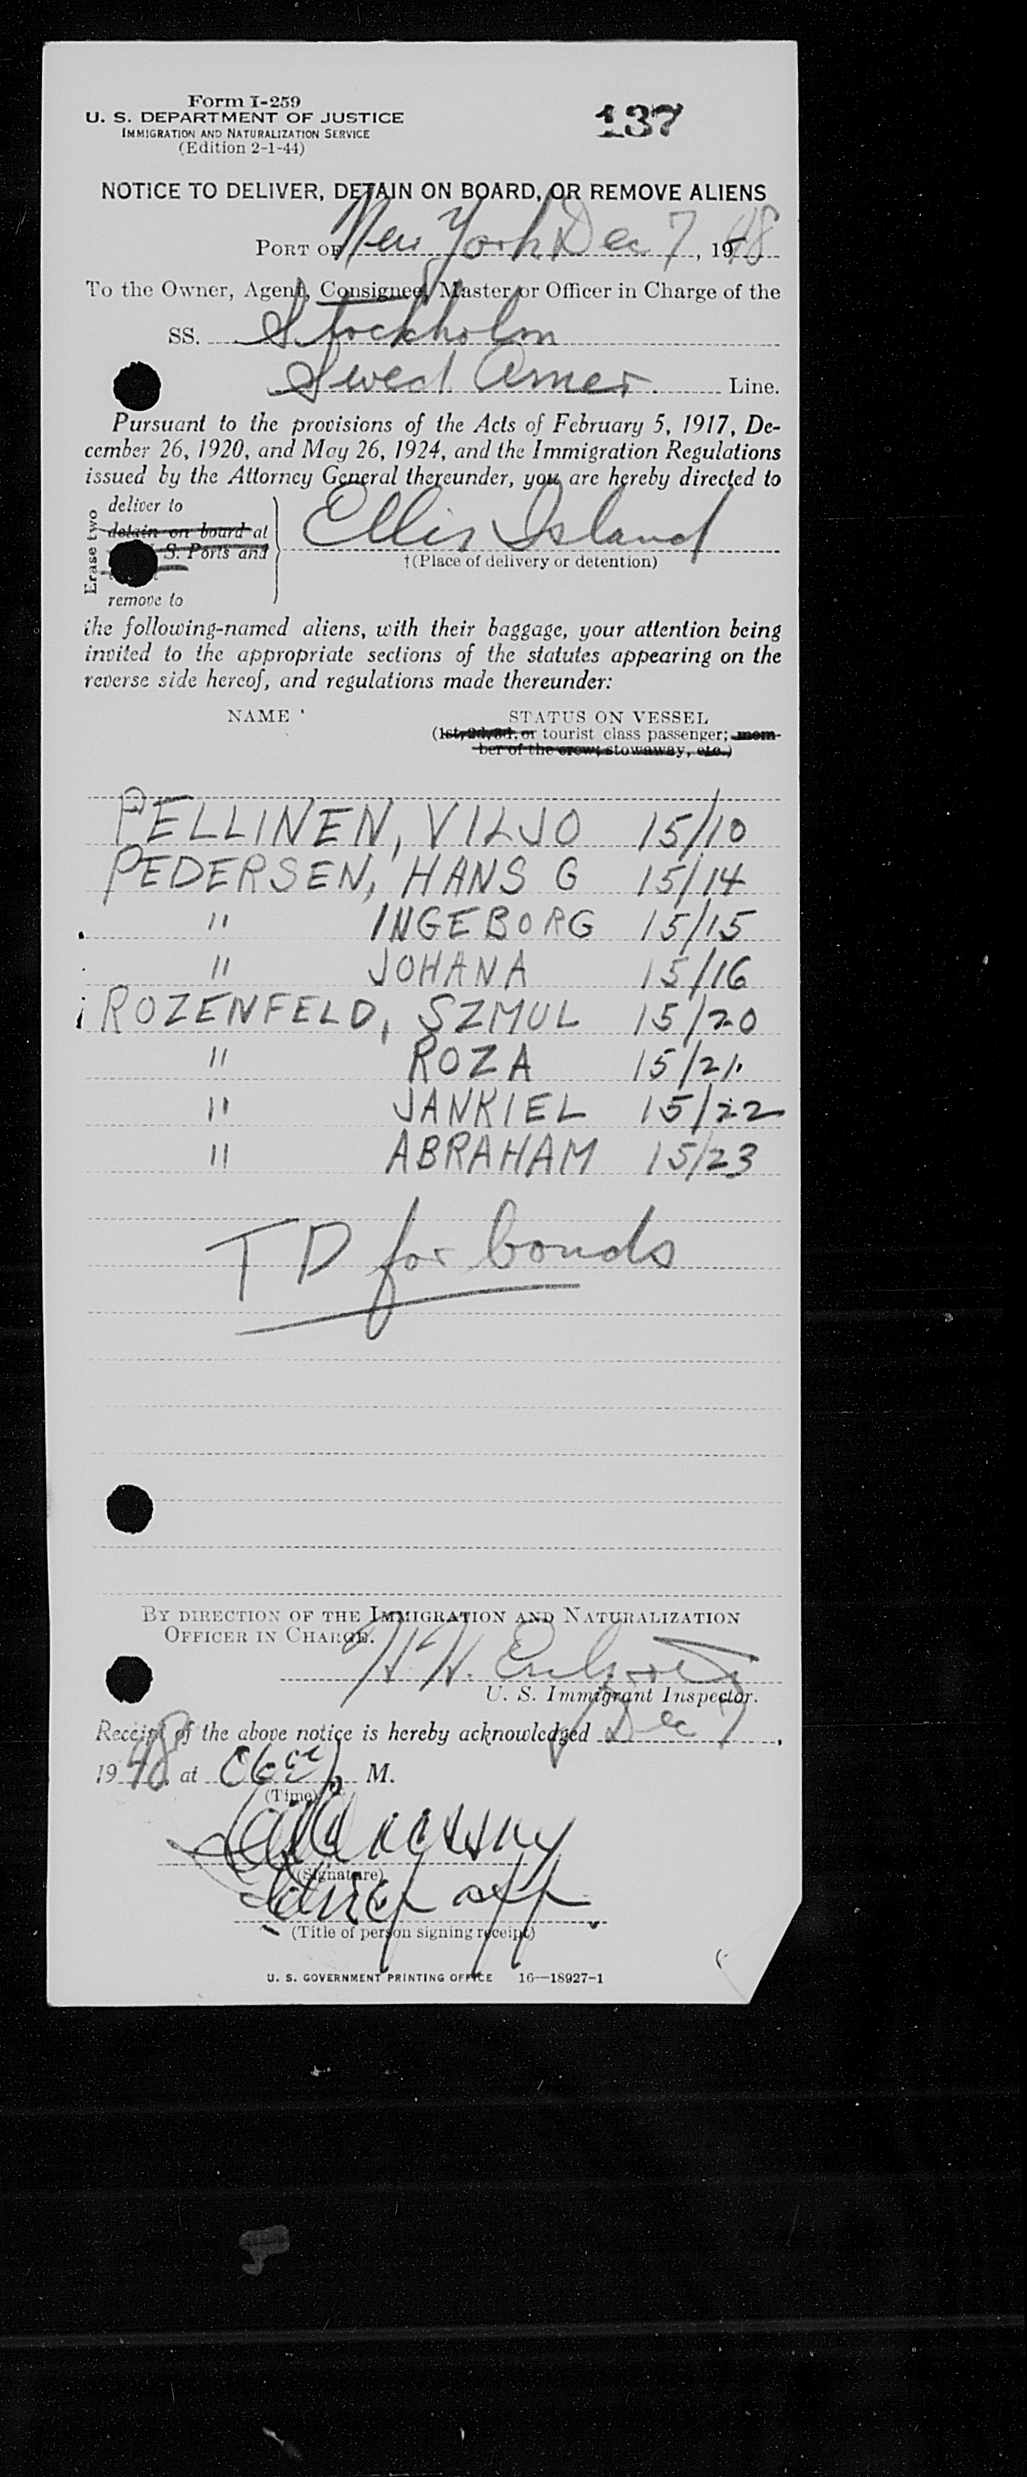 Form I-259
U. S. DEPARTMENT OF JUSTICE
IMMIGRATION AND NATURALIZATION SERVICE
(Edition 2-1-44)
137
NOTICE TO DELIVER, DETAIN ON BOARD, OR REMOVE ALIENS
PORT OF New York Dec 7, 1948
To the Owner, Agent, Consignee, Master or Officer in Charge of the
SS. Stockholm
Swed Amer. Line.
Pursuant to the provisions of the Acts of February 5, 1917, De-
cember 26, 1920, and May 26, 1924, and the Immigration Regulations
issued by the Attorney General thereunder, you are hereby directed to
Erase two
deliver to
detain on board at
S. Ports and
remove to
Ellis Island
†(Place of delivery or detention)
the following-named aliens, with their baggage, your attention being
invited to the appropriate sections of the statutes appearing on the
reverse side hereof, and regulations made thereunder:
NAME STATUS ON VESSEL
(1st, 2d, 3d, or tourist class passenger; mem-
ber of the crew; stowaway, etc.)
PELLINEN, VILJO 15/10
PEDERSEN, HANS G 15/14
" INGEBORG 15/15
" JOHANA 15/16
ROZENFELD, SZMUL 15/20
" ROZA 15/21
" JANKIEL 15/22
" ABRAHAM 15/23
T D for bonds
BY DIRECTION OF THE IMMIGRATION AND NATURALIZATION
OFFICER IN CHARGE.
H. H.
U. S. Immigrant Inspector.
Receipt of the above notice is hereby acknowledged Dec 7,
1948, at M.
(Time)
(Signature)
(Title of person signing receipt)
U. S. GOVERNMENT PRINTING OFFICE 16—18927-1